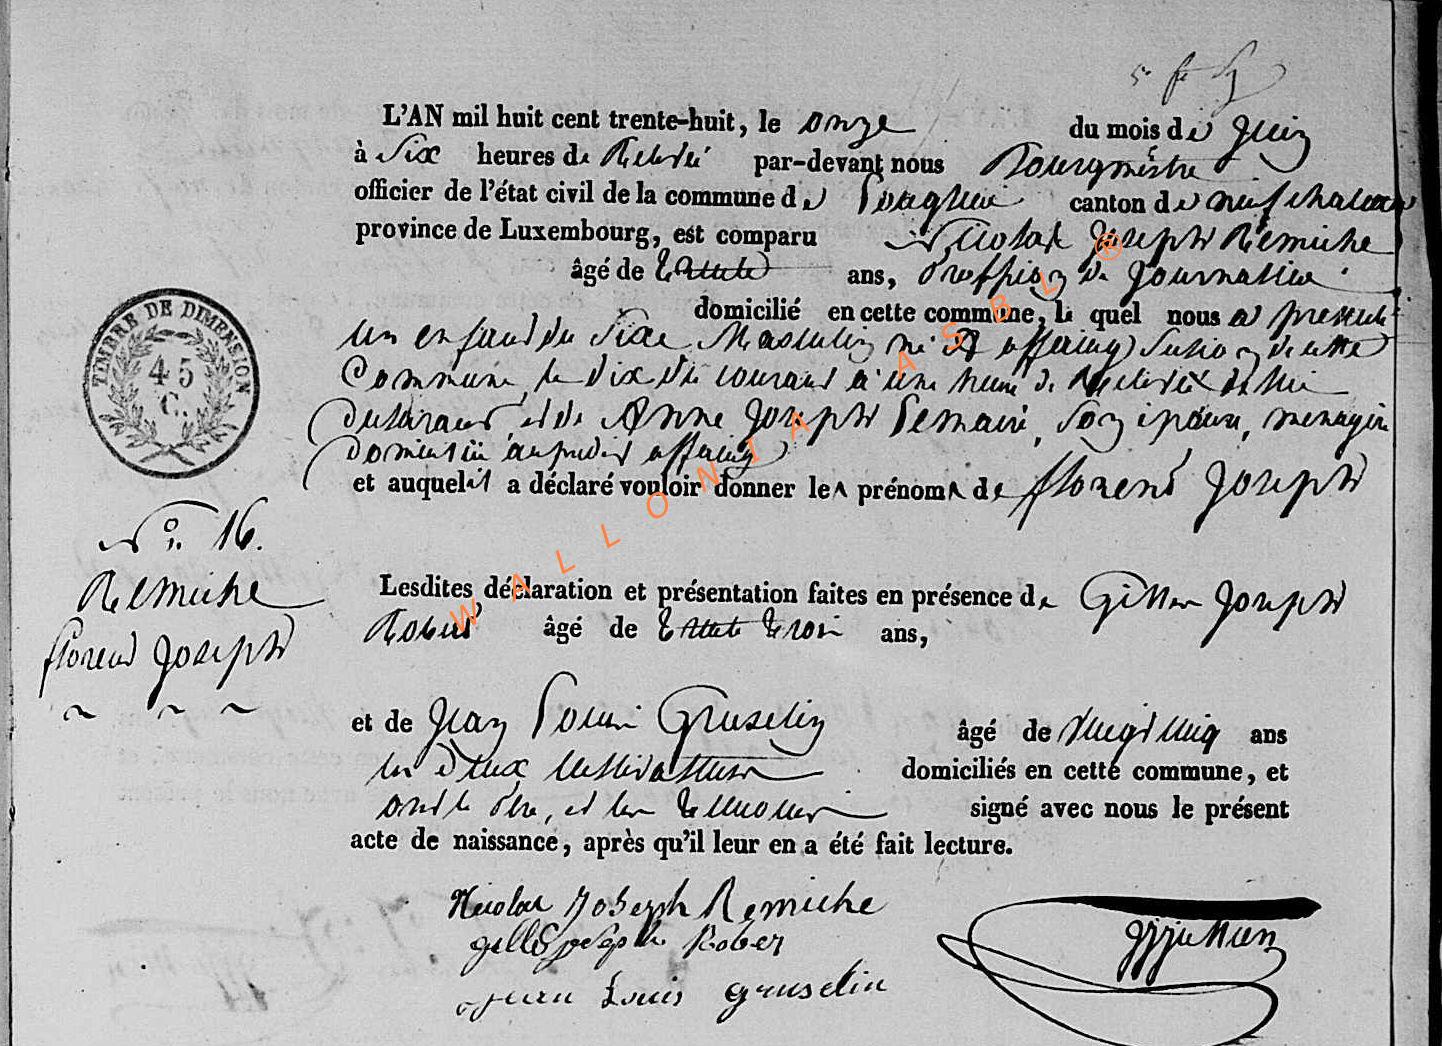 L'AN mil huit cent trente-huit, le onze du mois de Juin
à Six heures de Relevé par-devant nous Bourgmestre
officier de l'état civil de la commune de canton de neufchateau
province de Luxembourg, est comparu Nicolas Joseph Remiche
âgé de trente ans, Proffession de Journallier
domicilié en cette commune, le quel nous a presenté
un enfant du Sixe Masculin né à offaing Section de cette
Commune le Dix du courant à une heure de de lui
Declarant et de Anne Joseph Lemaire, Son epouse, menagere
Domicilié audit offaing
et auquel il a déclaré vouloir donner les prénoms de florent Joseph
N° 16.
Remiche
florent Joseph
Lesdites déclaration et présentation faites en présence de Gilles Joseph
Robert âgé de trente trois ans,
et de Jean Louis Gruselin âgé de vingt cinq ans
les deux Cultivateurs domiciliés en cette commune, et
ont le Pere, et les temoins signé avec nous le présent
acte de naissance, après qu'il leur en a été fait lecture.
Nicolas Joseph Remiche
gilles joseph Rober
jean Louis gruselin
TIMBRE DE DIMENSION
45
C.
WALLONIA ASBL ®